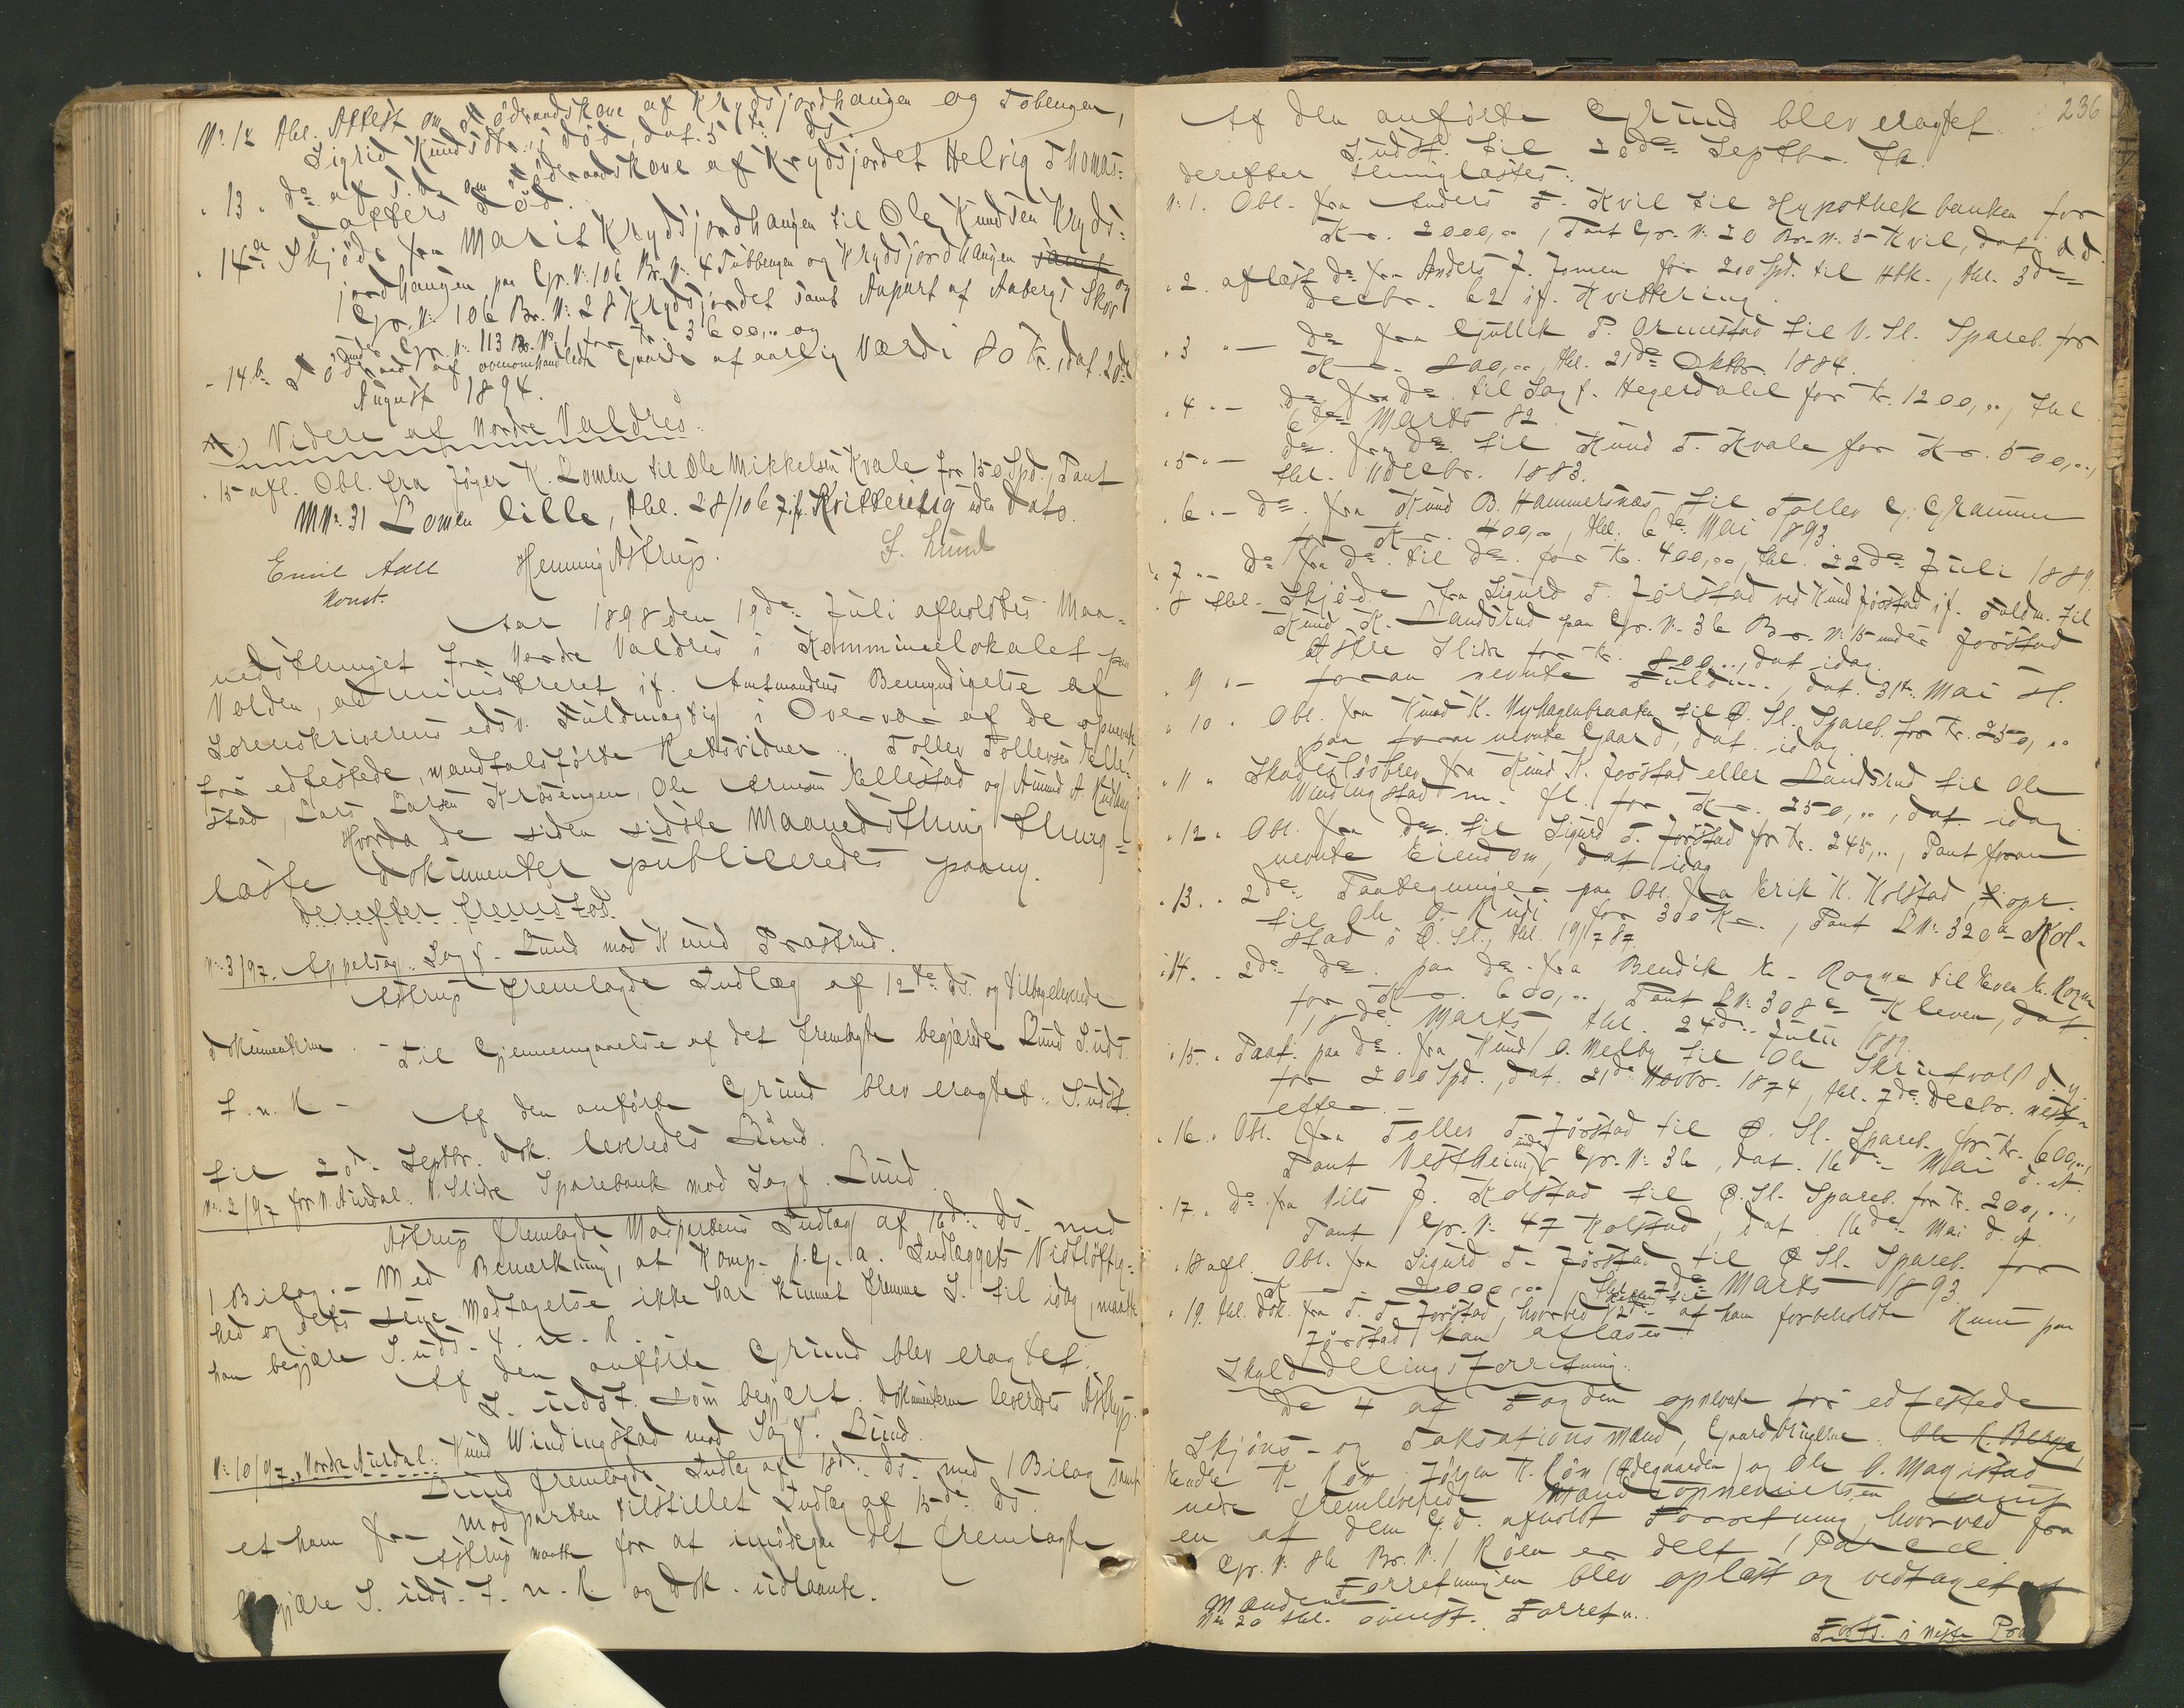 No. 12 thl. Attest om at ödraadskone af Krydsjordhaugen og Tobengen,
Sigrid Knudsdtr. i död, dat. 5te ds.
" 13 " do af s. d. om at ödraadskone af Krydsjordet Helvig Thomas-
datters död.
" 14a Skjöde fra Marit Krydsjordhaugen til Ole Knudsen Kryds-
jordhaugen paa Gr. N: 106 Br. N: 4 Tübbengen og Krydsjordhaugen samt og
Gr. N: 106 Br. N: 28 Krydsjordet samt Anpart af Aabergs Skov
under Gr. N: 113 Br. No 1 for Kr. 3600,.. og
- 14b. Födraad af ovenomhandlede Gaarde af aarlig Værdi 80 Kr., dat. 20de
August 1894.
A) Videre af Nordre Valdres.
" 15 afl. Obl. fra Jöger K. Lomen til Ole Mikkelsen Kvale for 150 Spd., Pant
MNr. 31 Lomen lille, thl. 28/10 67 if. Kvittering uden Dato.
Emil Aall Henning Astrup. S. Lund
Konst.
Aar 1898 den 19de Juli afholdtes Maa-
nedsthinget for Nordre Valdres i Kommunelokalet paa
Volden, administreret if. Amtmandens Bemyndigelse af
Sorenskriverens edsv. Fuldmægtig i Overvær af de opnevnte
for edfestede, mandtalsførte Retsvidner: Tollev Tollevsen Kelle-
stad, Lars Larsen Kråsengen, Ole Arnesen Kellestad og Amund A.
Hvorda de siden sidste Maanedsthing thing-
læste Dokumenter publiceredes paany.
Derefter fremstod.
No. 3/97. Appelsag. Sagf. Lund mod Knud Prastrud.
Astrup fremlagde Indlæg af 12te ds. og tilbageleverede
Dokumenterne. - Til Gjennemgaaelse af det fremlagte begjærede Lund S. uds.
t. n. R. - Af den anførte Grund blev eragtet: S. udst.
til 20de Septbr. Dok. leveredes Lund.
No. 2/97 for N. Aurdal. V. Slidre Sparebank mod Sagf. Lund
Astrup fremlagde Modpartens Indlæg af 16de ds. med
1 Bilag. - Med Bemærkning, at Komp. p. G. a. Indlæggets Vidtløftig-
hed og dets sene Modtagelse ikke har kunnet fremme S. til idag, maatte
han begjære S. uds. t. n. R. -
Af den anførte Grund blev eragtet:
S. udst. som begjært. Dokumenterne leveredes Astrup.
No. 10/97, Nordre Aurdal: Knud Windingstad mod Sagf. Lund.
Lund fremlagde Indlæg af 18de ds. med 1 Bilag samt
et ham fra Modparten tilstillet Indlæg af 15de ds.
Astrup maatte for at imødegaa det fremlagte
begjære S. uds. t. n. R. og Dok. udlaante.
236
Af den anførte Grund blev eragtet
S. udst. til 20de Septbr. thl.
Derefter thinglæstes:
No. 1. Obl. fra Anders T. Kvil til Hypothekbanken for
Kr. 2000,.., Pant Gr. N: 20 Br. N: 5 Kvil, dat. d. d.
" 2. aflæst do. fra Anders J. Jomen for 200 Spd. til Hbk., thl. 3de
Decbr. 62 if. Kvittering.
" 3 " - do. fra Gullik T. Ormestad til V. Sl. Spareb. for
Kr. 800,.., thl. 21de Oktbr. 1884.
" 4 " - do. fra do. til Sagf. Hegerdahl for Kr. 1200,.., thl.
6te Marts 82.
" 5 " - do. fra do. til Knud T. Kvale for Kr. 500,..,
thl. 11 Decbr. 1883.
" 6 " - do. fra Knud B. Hammersnæs til Tollev G.
for Kr. 400,.., thl. 6te Mai 1893.
" 7 " - do. fra do. til do. for Kr. 400,.., thl. 22de Juli 1889.
" 8 thl. Skjöde fra Sigurd T. Jörstad ved Knud Jörstad if. Fuldm. til
Knud K. Landsrud paa Gr. N: 36 Br. N: 15 under Jörstad
Østre Slidre for Kr. 800,.., dat. idag.
" 9 " - foran nevnte Fuldm., dat. 31te Mai
" 10 " Obl. fra Knud K. Nyhagenbraaten til Ø. Sl. Spareb. for Kr. 250,..
paa foran nevnte Gaard, dat. idag.
" 11 " Skadeslösbrev fra Knud K. Jörstad eller Landsrud til Ole
Windingstad m. fl. for Kr. 250,.., dat. idag.
" 12 " Obl. fra do. til Sigurd T. Jörstad for Kr. 245,.., Pant foran
nevnte Eiendom, dat. idag
" 13 " 2de Paategninger paa Obl. fra Erik K. Kolstad, opr.
til Ole O. Rudi for 300 Kr., Pant LN: 320a Kol-
stad i Ø. Sl., thl. 19/7 87.
" 14 " 2de do. paa do. fra Bendik K. Rogne til Even K. Rogne
for Kr. 600,.., Pant LN: 308c Kleven, dat.
18de Marts, thl. 24de Juli 1889.
" 15 " Paat. paa do. fra Knud O. Melby til Ole Skrutvold d. y.
for 200 Spd., dat. 21de Novbr. 1874, thl. 7de Decbr. nest-
efter. -
" 16 " Obl. fra Tollev T. Jörstad til Ø. Sl. Spareb. for Kr. 600,..,
Pant Vestheim under Gr. N: 36, dat. 16de Mai d. A.
" 17 " do. fra Nils J. Kolstad til Ø. Sl. Spareb. for Kr. 200,..,
Pant Gr. N: 47 Kolstad, dat. 16de Mai d. A.
" 18 afl. Obl. fra Sigurd T. Jörstad til Ø. Sl. Spareb. for
Kr. 2000,.., thl. 7de Marts 1893.
" 19. thl. Dok. fra S. T. Jörstad, hvorved 2de af ham forbeholdte Rum paa
Jörstad kan aflæses.
Skylddelingsforretning.
De 4 af Fogden opnevnte for edfestede
Skjöns- og Taksationsmænd, Gaardbrugerne Ole K. Berge,
Endre K. Rön, Jörgen K. Rön (Ødegaarden) og Ole O. Magistad
nede fremleverede Mandsopnevnelsen samt
en af dem G. d. afholdt Forretning, hvorved fra
Gr. N: 86 Br. N: 1 Roen er delt 1 Parcel.
Forretningen blev oplæst og vedtaget af
Mændene
No. 20 thl. övenst. Forretn.
Forts. i neste Prot.